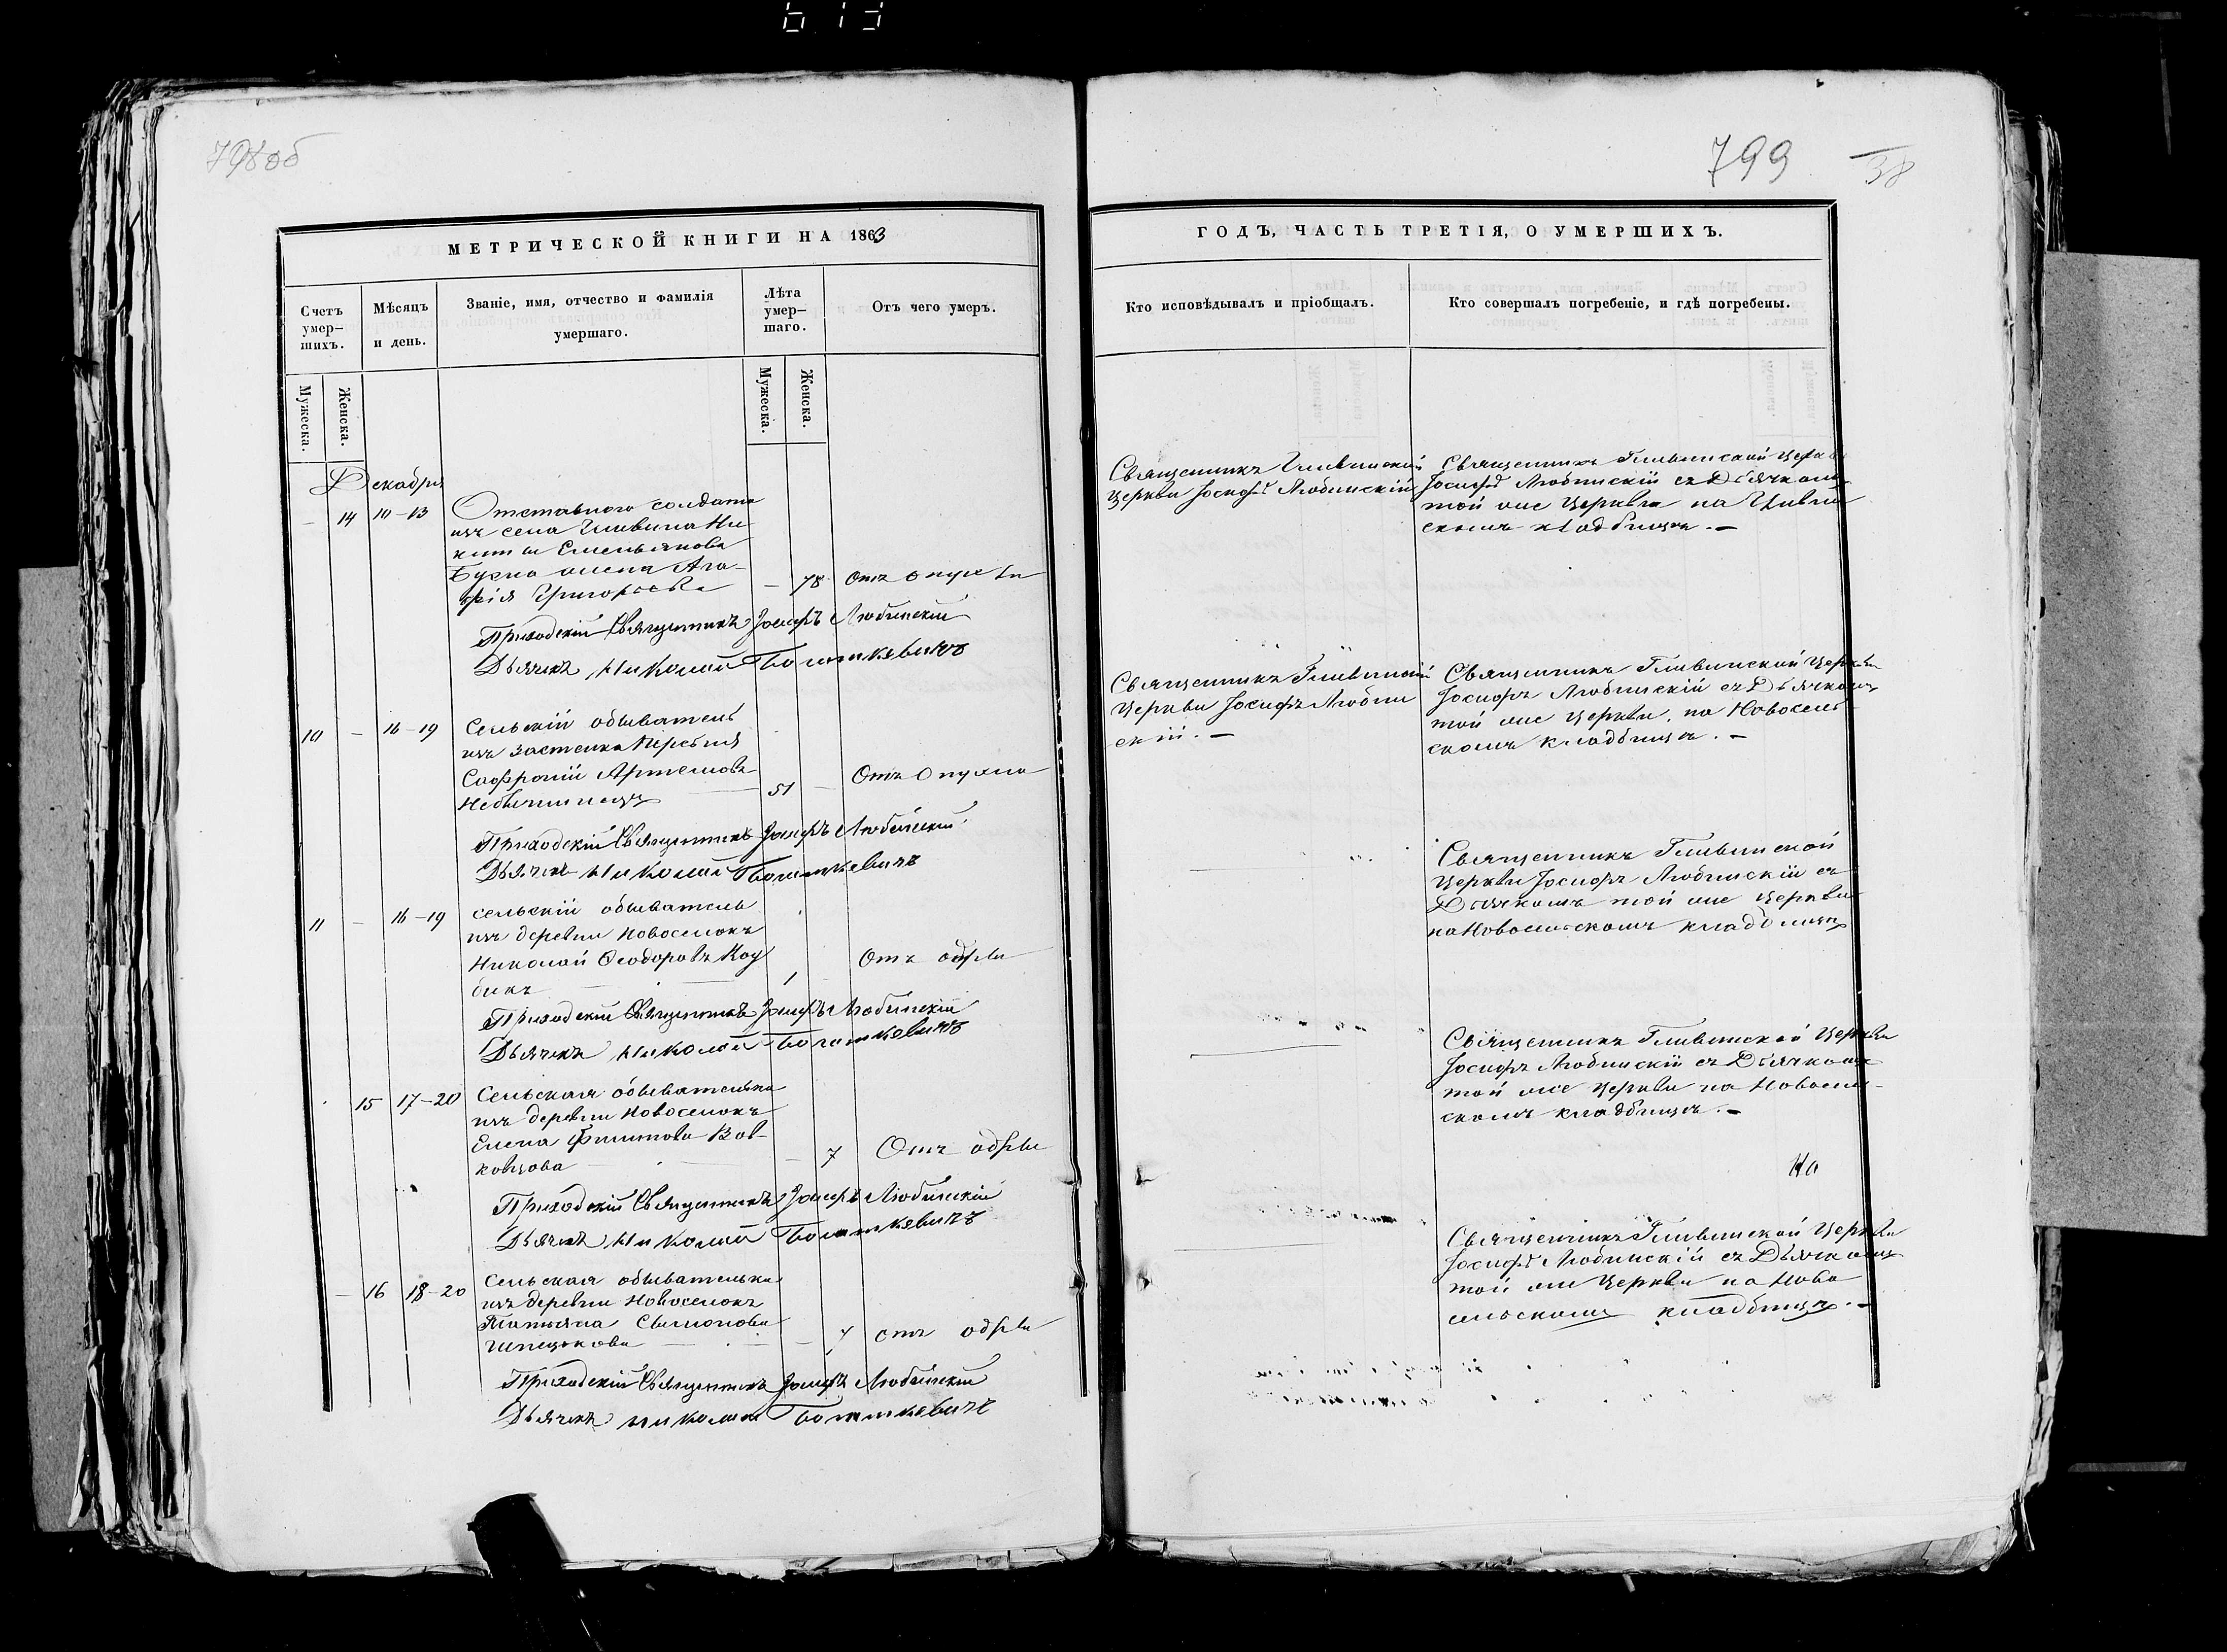 798об
799 38
МЕТРИЧЕСКОЙ КНИГИ НА 1863
Счетъ умер–шихъ.
Мѣсяцъ и день.
Званіе, имя, отчество и фамилія умершаго.
Лѣта умер–шаго.
Отъ чего умеръ.
Мужеска.
Женска.
Мужеска.
Женска.
Декабря
– 14 10–13 Отставного солдата
изъ села Гливина Ни-
киты Емельянова
Букно жена Ага-
фія Григорьева – 78 отъ
Приходскій Священникъ Іосифъ Любинскій
Дьячекъ Николай
10 – 16–19 Сельскій обыватель
изъ застенка
Софроній Артемовъ
51 – Отъ опухли
Приходскій Священникъ Іосифъ Любинскій
Дьячекъ Николай
11 – 16–19 сельскій обыватель
изъ деревни Новоселокъ
Николай Ѳеодоровъ Коу
бикъ 1 – Отъ одры
Приходскій Священникъ Іосифъ Любинскій
Дьячекъ Николай
15 17–20 Сельская обывателька
изъ деревни Новоселокъ
Елена Филипова Вов-
ковцова – 7 Отъ одры
Приходскій Священникъ Іосифъ Любинскій
Дьячекъ Николай
– 16 18–20 Сельская обывателька
изъ деревни Новоселокъ
Татьяна Симонова
– отъ одры
Приходскій Священникъ Іосифъ Любинскій
Дьячекъ Николай
ГОДЪ, ЧАСТЬ ТРЕТІЯ, О УМЕРШИХЪ.
Кто исповѣдывалъ и пріобщалъ.
Кто совершалъ погребеніе, и гдѣ погребены.
Священникъ Гливинскій
Церкви Іосифъ Любинскій
Священникъ Гливинской Церкви
Іосифъ Любинскій съ Дьячкомъ
той же Церкви на Гливин
скомъ кладбищѣ. –
Священникъ Гливинскій
Церкви Іосифъ Любин
скій. –
Священникъ Гливинской Церкви
Іосифъ Любинскій съ Дьячкомъ
той же Церкви на Новосель
скомъ кладбищѣ. –
Священникъ Гливинской
Церкви Іосифъ Любинскій съ
Дьячкомъ той же Церкви
на Новосельскомъ кладбищѣ
Священникъ Гливинской Церкви
Іосифъ Любинскій съ Дьячкомъ
той же Церкви на Новосель-
скомъ кладбищѣ. –
На
Священникъ Гливинской Церкви
Іосифъ Любинскій съ Дьячкомъ
той же Церкви на Ново
сельскомъ кладбищѣ. –